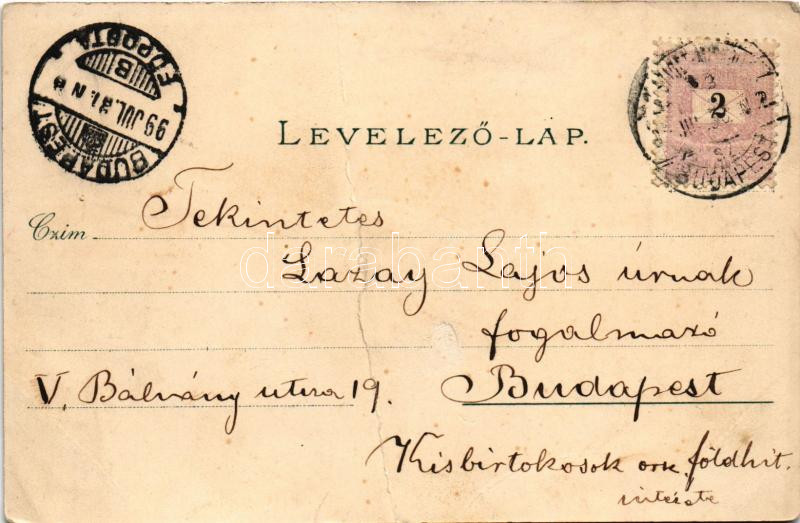 BUDAPEST
99 JUL. 31. N 8
B
FŐPOSTA
2
BUDAPEST
LEVELEZŐ-LAP.
Czim
Tekintetes
Lazay Lajos úrnak
fogalmazó
V. Bálvány utcza 19. Budapest
Kisbirtokosok orsz. földhit.
intézete
darabanth